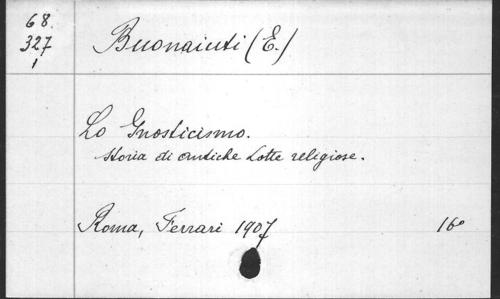 68.
327
1
Buonaiuti (E.)
Lo Gnosticismo.
Storia di antiche Lotte religiose.
Roma, Ferrari 1907 16º